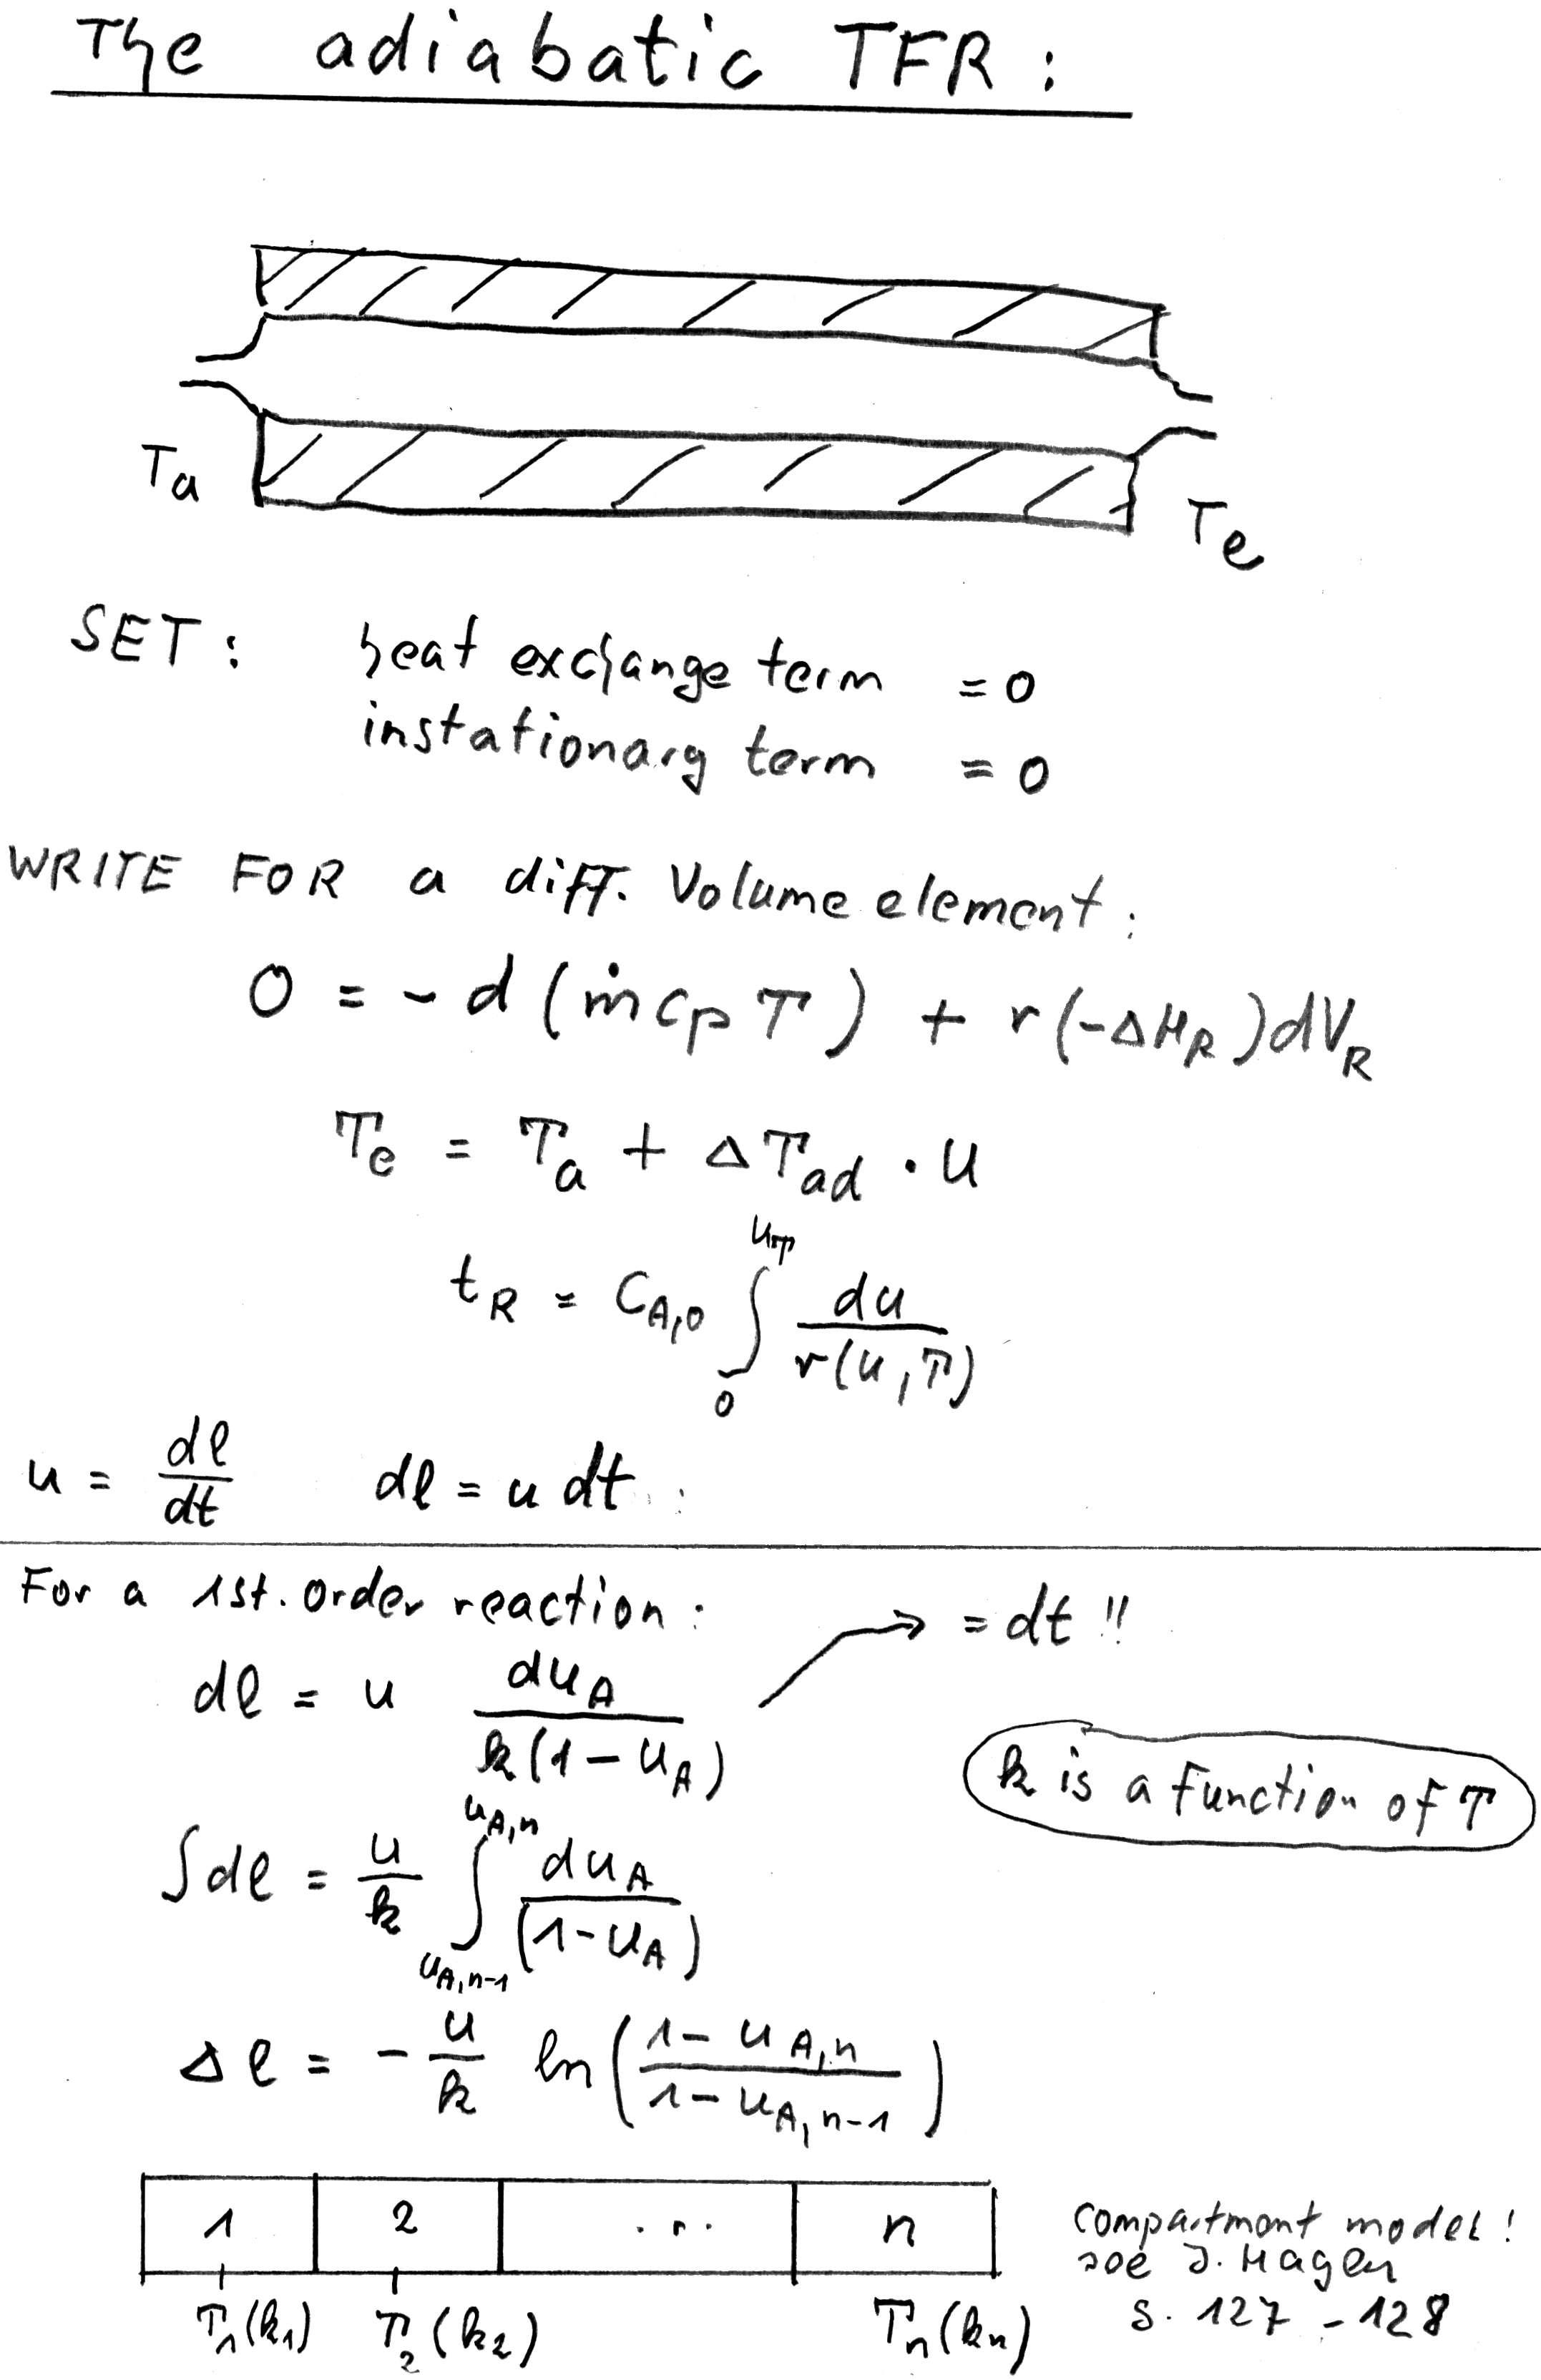 The adiabatic TFR:
Ta
Te
SET: heat exchange term = 0
instationary term = 0
WRITE FOR a diff. Volume element:
0 = - d (ṁ cp T) + r (-ΔHR) dVR
Te = Ta + ΔTad · U
tR = CA,0 ∫_0^{UT} du / r(U,T)
u = dl/dt dl = u dt
For a 1st. Order reaction: = dt!!
dl = u dUA / k(1-UA)
k is a function of T
∫dl = u/k ∫_{UA,n-1}^{UA,n} dUA / (1-UA)
Δl = - u/k ln( (1-UA,n) / (1-UA,n-1) )
1 2 ... n
T1(k1) T2(k2) Tn(kn)
compartment model!
see J. Hagen
S. 127 - 128